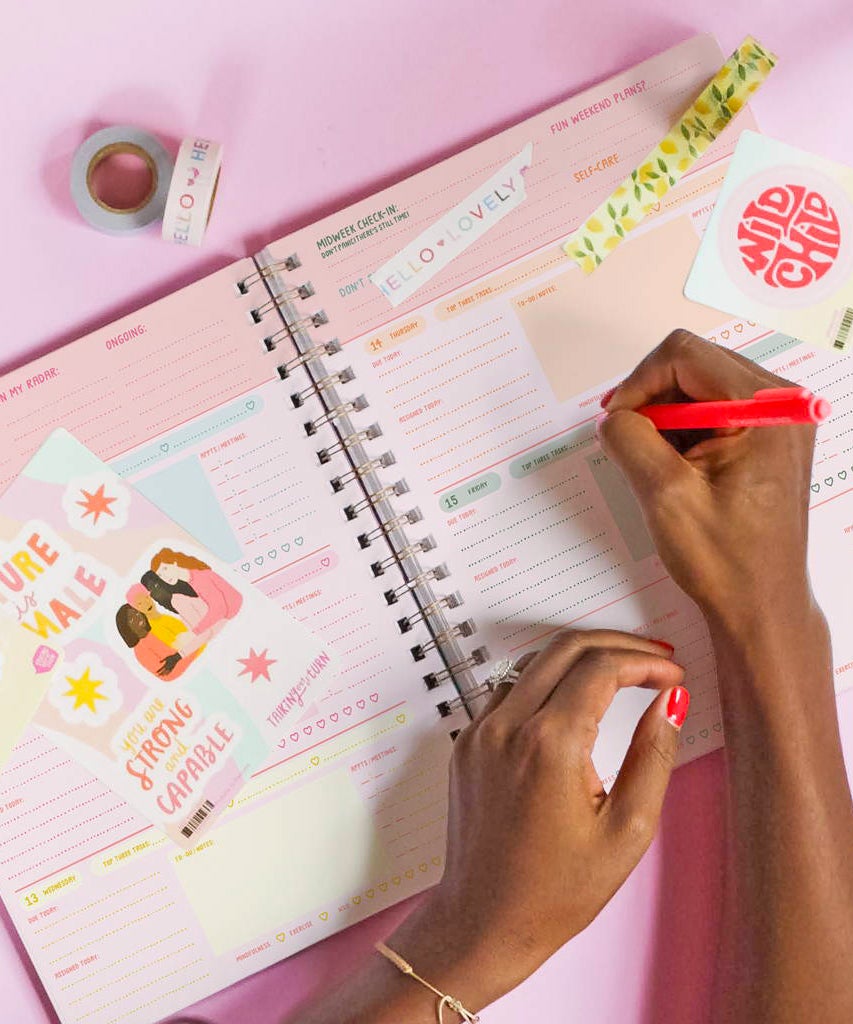 HELLO ♥ HE
ON MY RADAR:
ONGOING:
APPTS/MEETINGS:
TURE
is
MALE
TAKING my TURN
you are
STRONG
and
CAPABLE
APPTS/MEETINGS:
13 WEDNESDAY
TOP THREE TASKS:
TO-DO/NOTES:
DUE TODAY:
ASSIGNED TODAY:
MINDFULNESS
EXERCISE
MIDWEEK CHECK-IN:
DON'T PANIC (THERE'S STILL TIME)
DON'T
HELLO ♥ LOVELY ♥
FUN WEEKEND PLANS?
SELF-CARE
WILD
CHILD
14 THURSDAY
TOP THREE TASKS:
TO-DO/NOTES:
DUE TODAY:
ASSIGNED TODAY:
15 FRIDAY
TOP THREE TASKS:
DUE TODAY:
ASSIGNED TODAY: